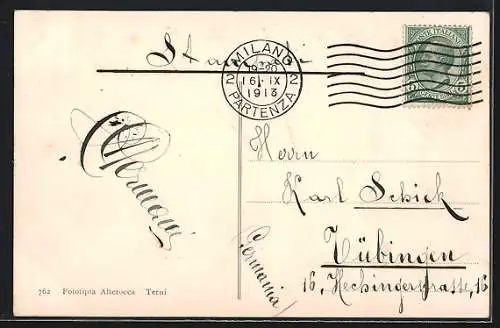 Stampati
MILANO
16. IX
1913
2 2
PARTENZA
POSTE ITALIANE
Herrn
Karl Schick
Tübingen
16, Hechingerstrasse, 16
Germania
762 Fototipia Alterocca Terni